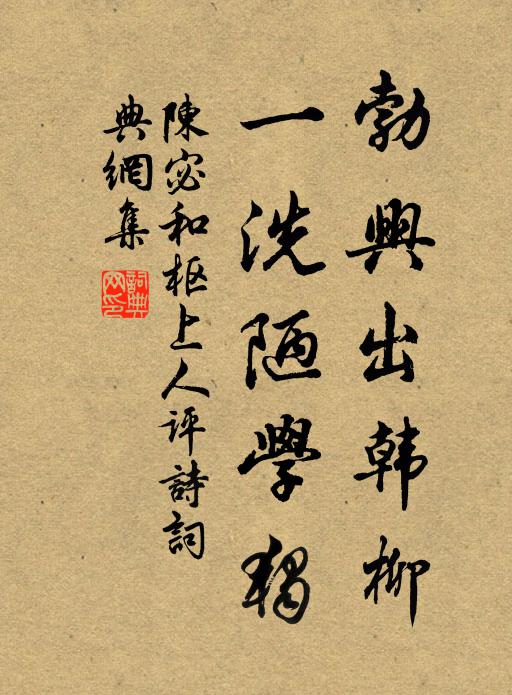 勃興出韩柳
一洗陋學獨
陳宓和枢上人评詩詞
典網集
詞典网印